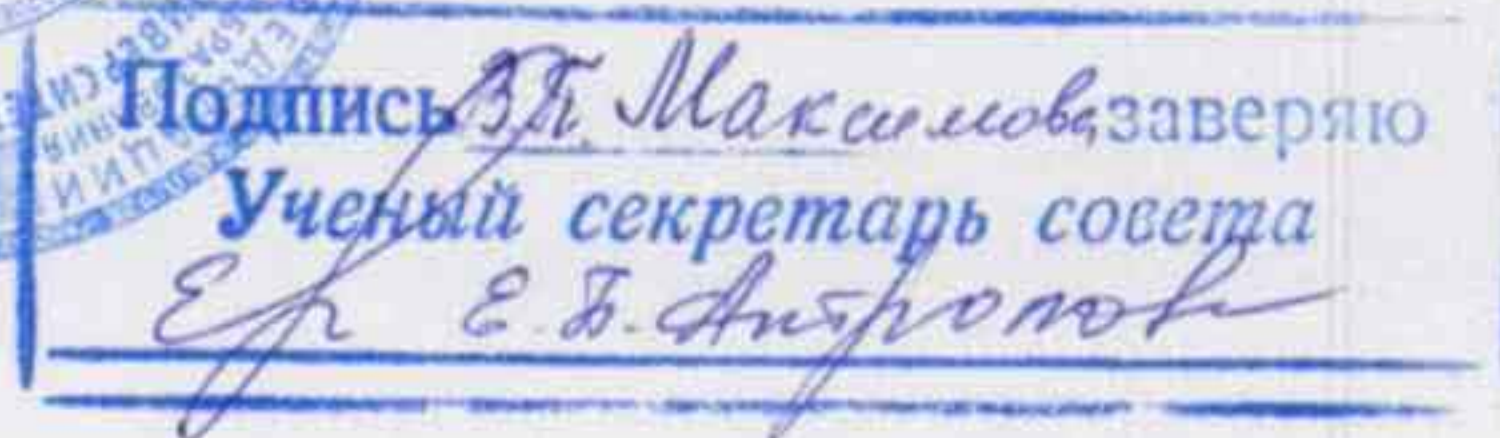 Подпись В.П. Максимова заверяю
Ученый секретарь совета
Е. Б. Антропова